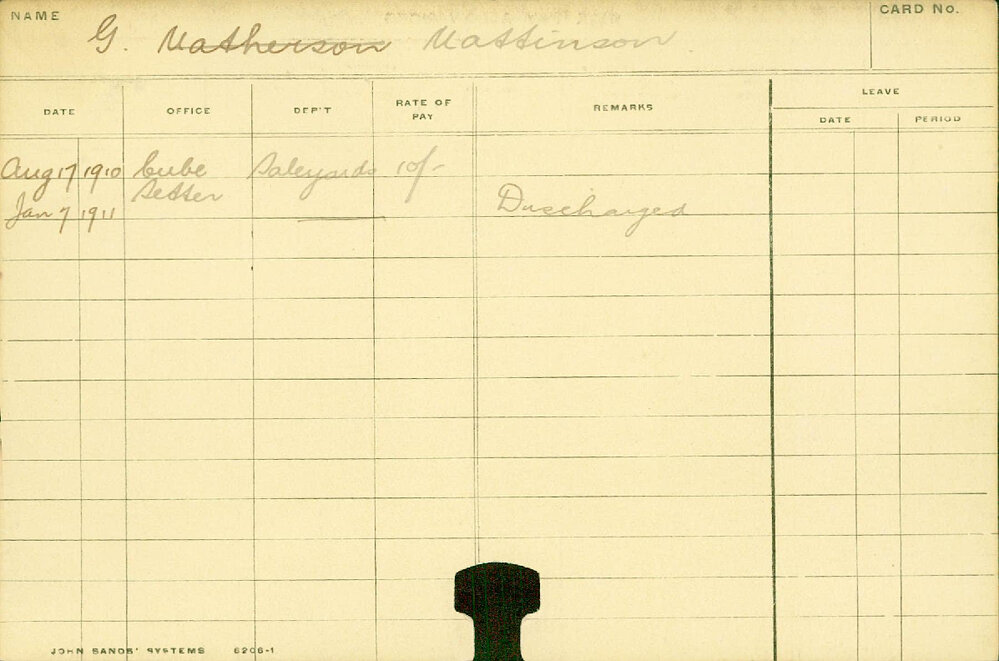 NAME
CARD No.
G. Matherson Mattinson.
DATE OFFICE DEP'T RATE OF PAY REMARKS LEAVE
DATE PERIOD
Aug 17 1910 Cube Setter Saleyards 10/-
Jan 7 1911 Discharged
JOHN SANDS' SYSTEMS 6206-1